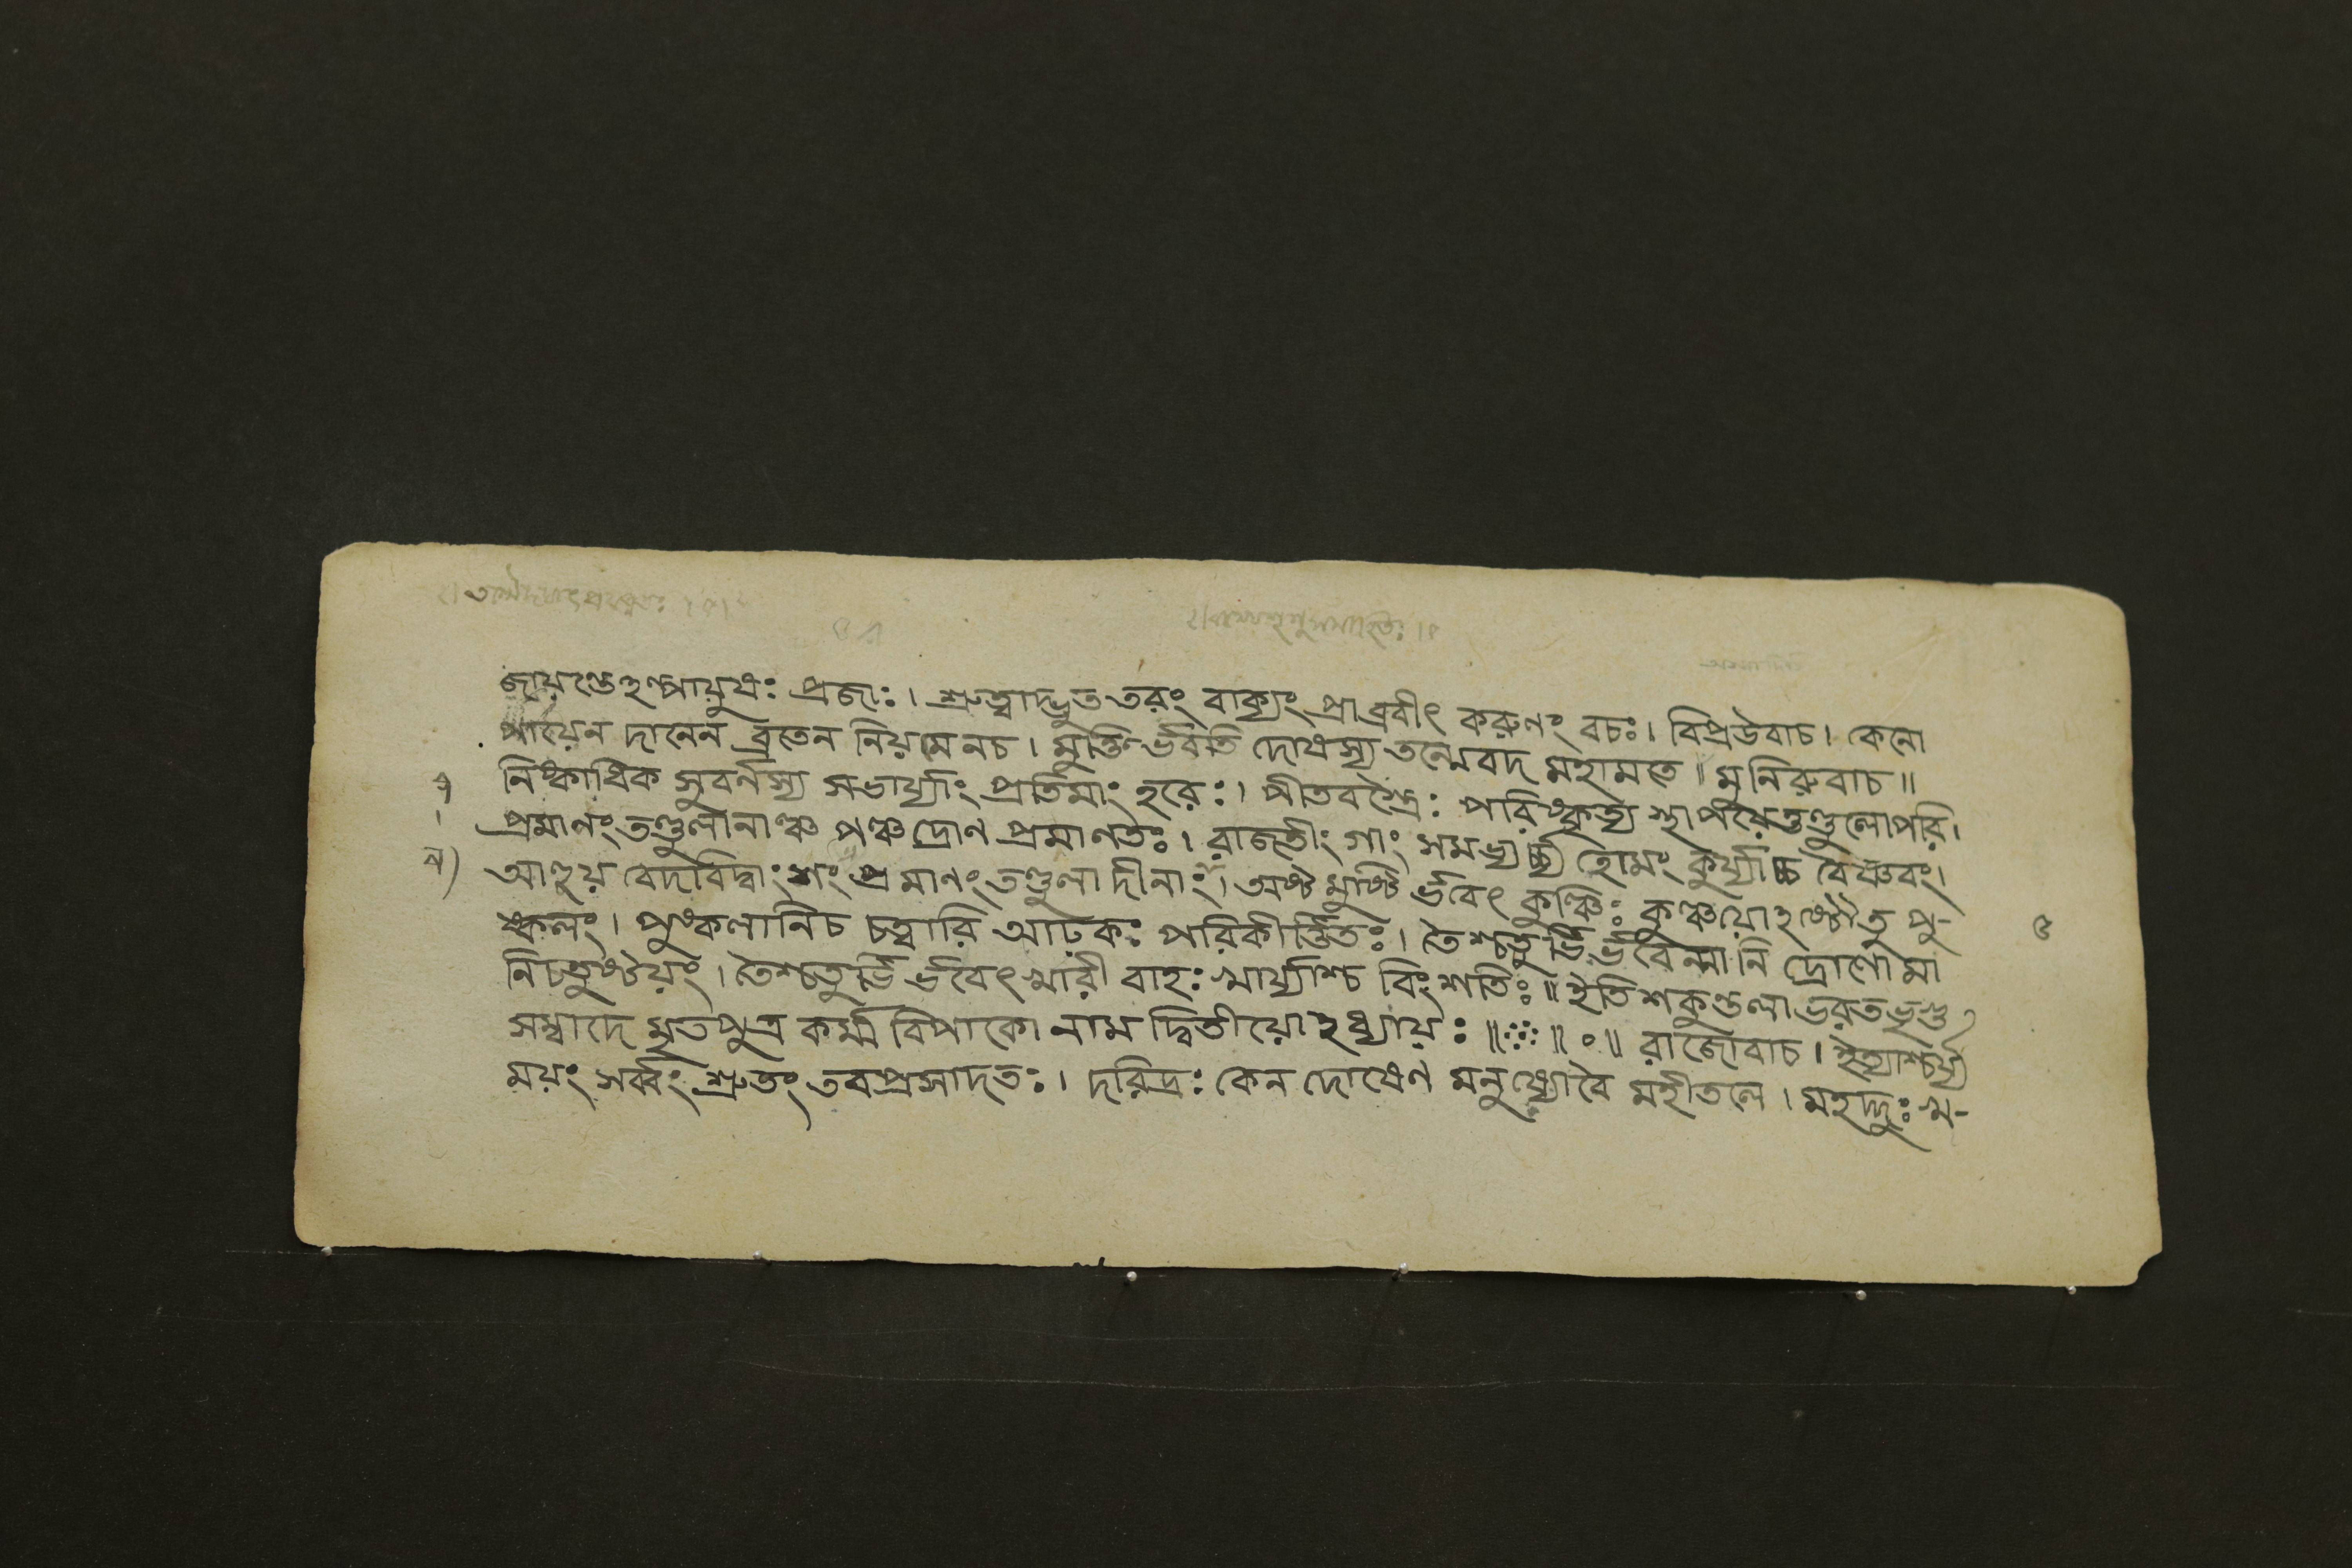 জায়ন্তেঽল্পায়ুষঃ প্রজাঃ। শ্রুত্বাদ্ভুততরং বাক্যং প্রাব্রবীৎ করুণং বচঃ। বিপ্রউবাচ। কেনো
পায়েন দানেন ব্রতেন নিয়মেনচ। মুক্তির্ভবতি দোষস্য তন্মেবদ মহামতে॥ মুনিরুবাচ॥
নিষ্কাধিক সুবর্নস্য সভার্য্যাং প্রতিমাং হরেঃ। পীতবস্ত্রৈঃ পরিষ্কৃত্য স্থাপয়েত্তণ্ডুলোপরি।
প্রমানং তণ্ডুলানাঞ্চ পঞ্চদ্রোণ প্রমাণতঃ। রাজতীং গাং সমভ্যর্চ্চ্য হোমং কুর্য্যাচ্চ বৈষ্ণবং।
আহূয় বেদবিদ্বাংশং প্রমানং তণ্ডুলাদীনাং। অষ্টমুষ্টির্ভবেৎ কুঞ্চিঃ কুঞ্চয়োঽষ্টৌতু পু-
ষ্কলং। পুষ্কলানিচ চত্বারি আঢ়কঃ পরিকীর্ত্তিতঃ। তৈশ্চতুর্ভির্ভবেন্মানি দ্রোণোমা
নিচতুষ্টয়ং। তৈশ্চতুর্ভির্ভবেৎ খারী বাহঃ খার্য্যাশ্চ বিংশতিঃ॥ ইতি শকুন্তলাভরতভৃগু
সম্বাদে মৃতপুত্র কর্ম্মবিপাকো নাম দ্বিতীয়োঽধ্যায়ঃ॥ ॥ ০॥ রাজোবাচ। ইত্যাশ্চর্য্য
ময়ং সর্ব্বং শ্রুতং তবপ্রসাদতঃ। দরিদ্রঃ কেন দোষেণ মনুষ্যোবৈ মহীতলে। মহদ্দুঃখ-